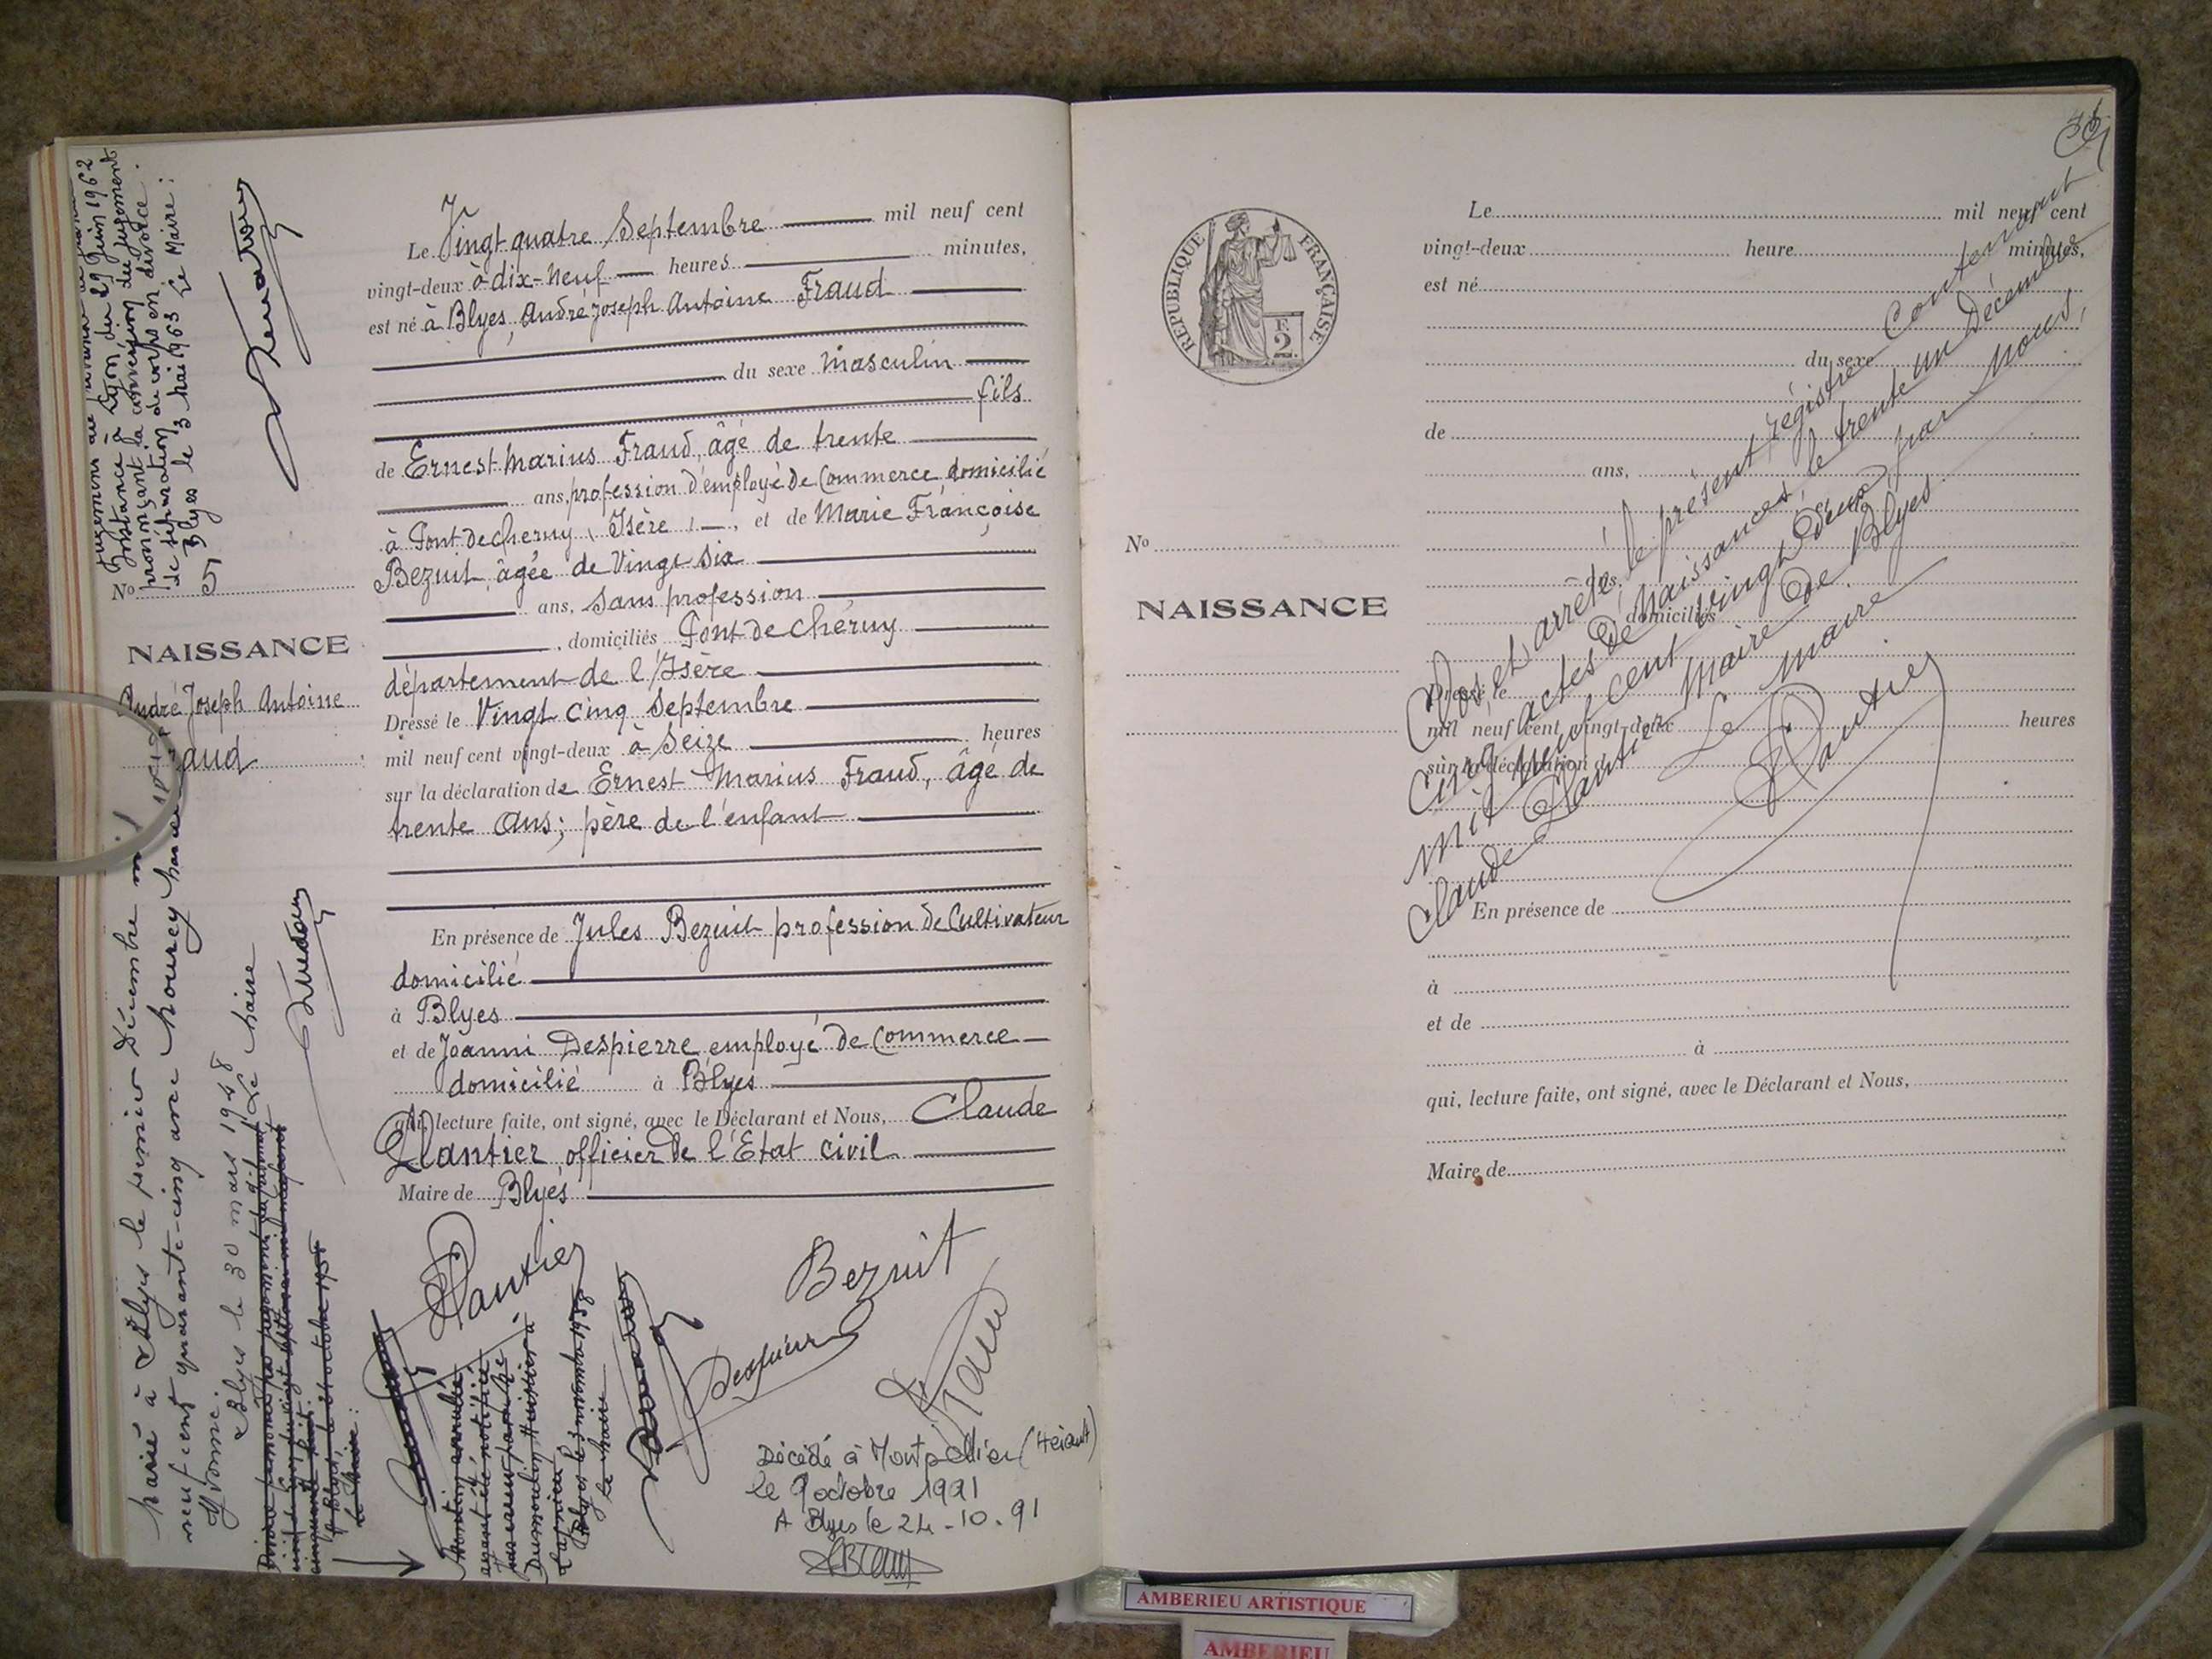 Instance à Lyon du 29 Juin 1962
prononçant la conversion du jugement
de séparation de corps en divorce.
Blyes le 3 Mai 1963 Le Maire :
5
No
NAISSANCE
André Joseph Antoine
raud
Marié à Blyes le premier Décembre mil
neuf cent quarante-cinq avec Mourey
Yvonne.
Blyes le 30 mars 1948
Le Maire
Le Vingt quatre Septembre mil neuf cent
vingt-deux à dix-neuf heures minutes,
est né à Blyes, André Joseph Antoine Fraud
du sexe Masculin
fils
de Ernest Marius Fraud, âgé de trente
ans, profession d'employé de Commerce, domicilié
à Pont de cheruy (Isère), et de Marie Françoise
Bezuit, âgée de Vingt six
ans, Sans profession
, domiciliés Pont de Chéruy
département de l'Isère
Dressé le Vingt cinq Septembre
mil neuf cent vingt-deux à Seize heures
sur la déclaration de Ernest Marius Fraud, âgé de
trente Ans; père de l'enfant
En présence de Jules Bezuit profession de Cultivateur
domicilié
à Blyes
et de Joanni Despierre employé de Commerce
domicilié à Blyes
qui, lecture faite, ont signé, avec le Déclarant et Nous, Claude
Plantier officier de l'Etat civil
Maire de Blyes
Plantier
Bezuit
Despierre
Fraud
Montion annulée
ayant été notifiée
par erreur par Me
Dumoulin Huissier à
Lagnieu
Blyes le 3 novembre 1958
Le Maire
Décédé à Montpellier (Hérault)
le 9 octobre 1991
A Blyes le 24-10-91
REPUBLIQUE FRANÇAISE
E.
2
No
NAISSANCE
Le mil neuf cent
vingt-deux heure minutes,
est né
du sexe
de
ans,
domiciliés
Dressé le
mil neuf cent vingt-deux heures
sur la déclaration d
En présence de
à
et de
à
qui, lecture faite, ont signé, avec le Déclarant et Nous,
Maire de
Clos et arrêté, le présent régistre Contenant
Cinq actes de Naissances, le trente un Décembre
mil neuf cent vingt deux, par Nous,
Claude Plantier Maire de Blyes
Le Maire
Plantier
AMBERIEU ARTISTIQUE
AMBERIEU